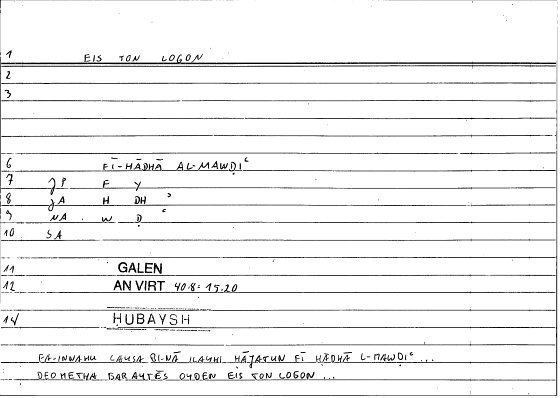 1 EIS TON LOGON
2
3
6 FĪ-HĀDHĀ AL-MAWḌIʿ
7 JP F Y
8 JA H DH ʾ
9 NA W Ḍ ʿ
10 SA
11 GALEN
12 AN VIRT 40.8 = 15.20
14 ḤUBAYSH
FA-INNAHU LAYSA BI-NĀ ILAYHI ḤĀJATUN FĪ HĀDHĀ L-MAWḌIʿ ...
DEOMETHA GAR AYTĒS OYDEN EIS TON LOGON ...